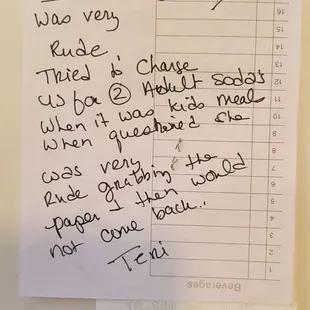 Was very
Rude
Tried to Charge
us for ② Adult Soda's
when it was kids meal
when questioned she
was very
Rude grabbing the
paper + then would
not come back..
Teri
16
15
14
13
12
11
10
9
8
7
6
5
4
3
2
1
Beverages